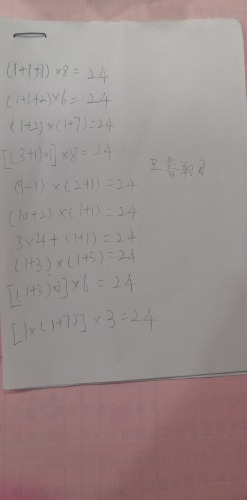 (1+1+1)×8=24
(1+1+2)×6=24
(1+2)×(1+7)=24
[(3+1)×1]×8=24
(9-1)×(2+1)=24
(10+2)×(1+1)=24
3×4+(1+1)=24
(1+3)×(1+5)=24
[(1+3)×1]×6=24
[1×(1+7)]×3=24